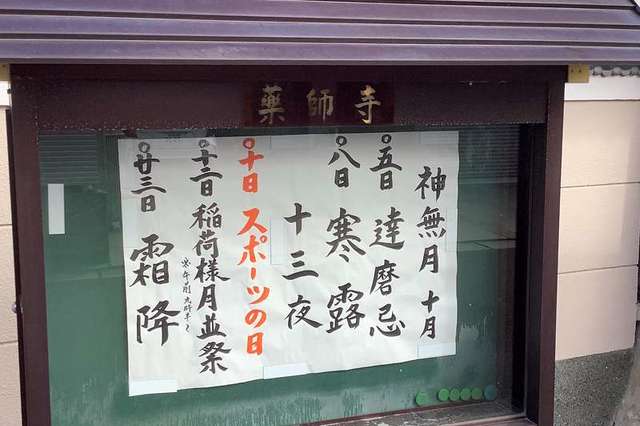 藥師寺
神無月 十月
○五日 達磨忌
○八日 寒露
十三夜
○十日 スポーツの日
○十二日 稲荷様月並祭
午前 九時半〜
○廿三日 霜降